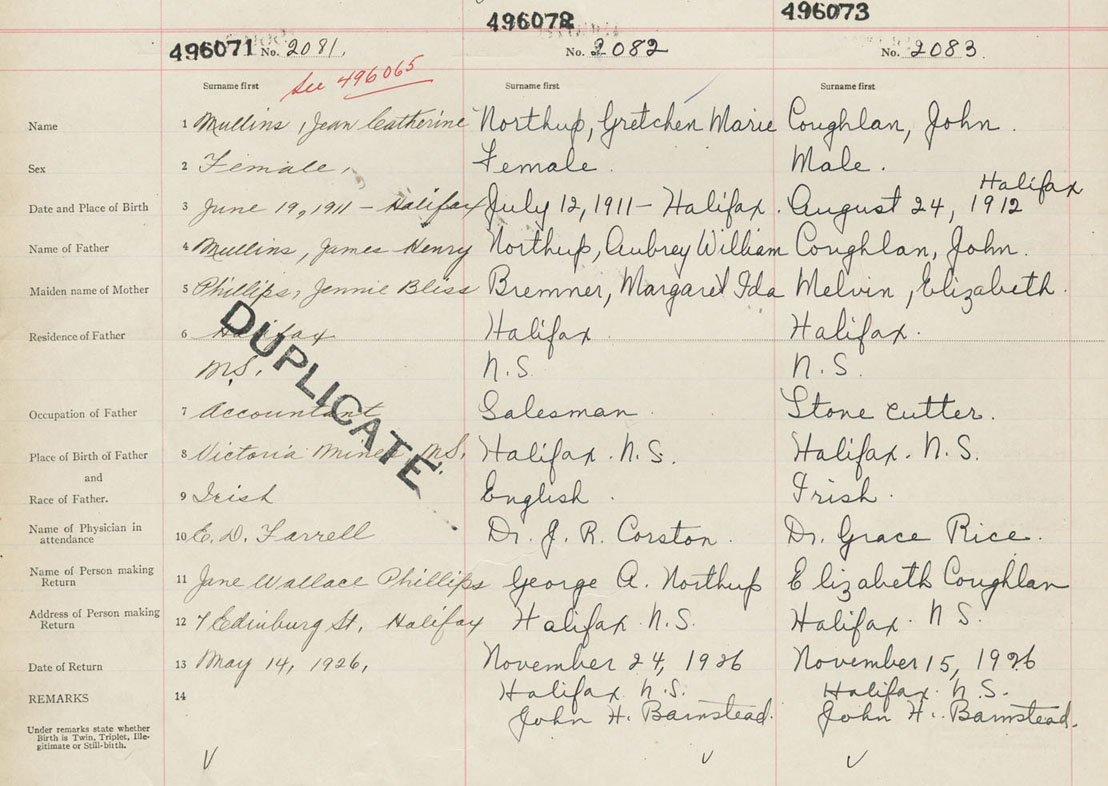 496071 No. 2081.
496072
No. 2082
496073
No. 2083.
See 496065
Surname first Surname first Surname first
Name 1 Mullins, Jean Catherine Northup, Gretchen Marie Coughlan, John.
Sex 2 Female. Female. Male.
Halifax
Date and Place of Birth 3 June 19, 1911 - Halifax July 12, 1911 - Halifax. August 24, 1912
Name of Father 4 Mullins, James Henry Northup, Aubrey William Coughlan, John.
Maiden name of Mother 5 Phillips, Jennie Bliss Bremner, Margaret Ida Melvin, Elizabeth.
Residence of Father 6 Halifax Halifax Halifax.
N.S. N.S. N.S.
DUPLICATE
Occupation of Father 7 Accountant Salesman Stone cutter.
Place of Birth of Father 8 Victoria Mines N.S. Halifax. N.S. Halifax. N.S.
and
Race of Father. 9 Irish English. Irish.
Name of Physician in
attendance 10 E. D. Farrell Dr. J. R. Corston. Dr. Grace Rice.
Name of Person making
Return 11 Jane Wallace Phillips George A. Northup Elizabeth Coughlan
Address of Person making
Return 12 7 Edinburg St, Halifax Halifax. N.S. Halifax. N S.
Date of Return 13 May 14, 1926, November 24, 1926 November 15, 1926
REMARKS 14 Halifax N.S. Halifax N.S.
John H. Barnstead. John H. Barnstead.
Under remarks state whether
Birth is Twin, Triplet, Ille-
gitimate or Still-birth.